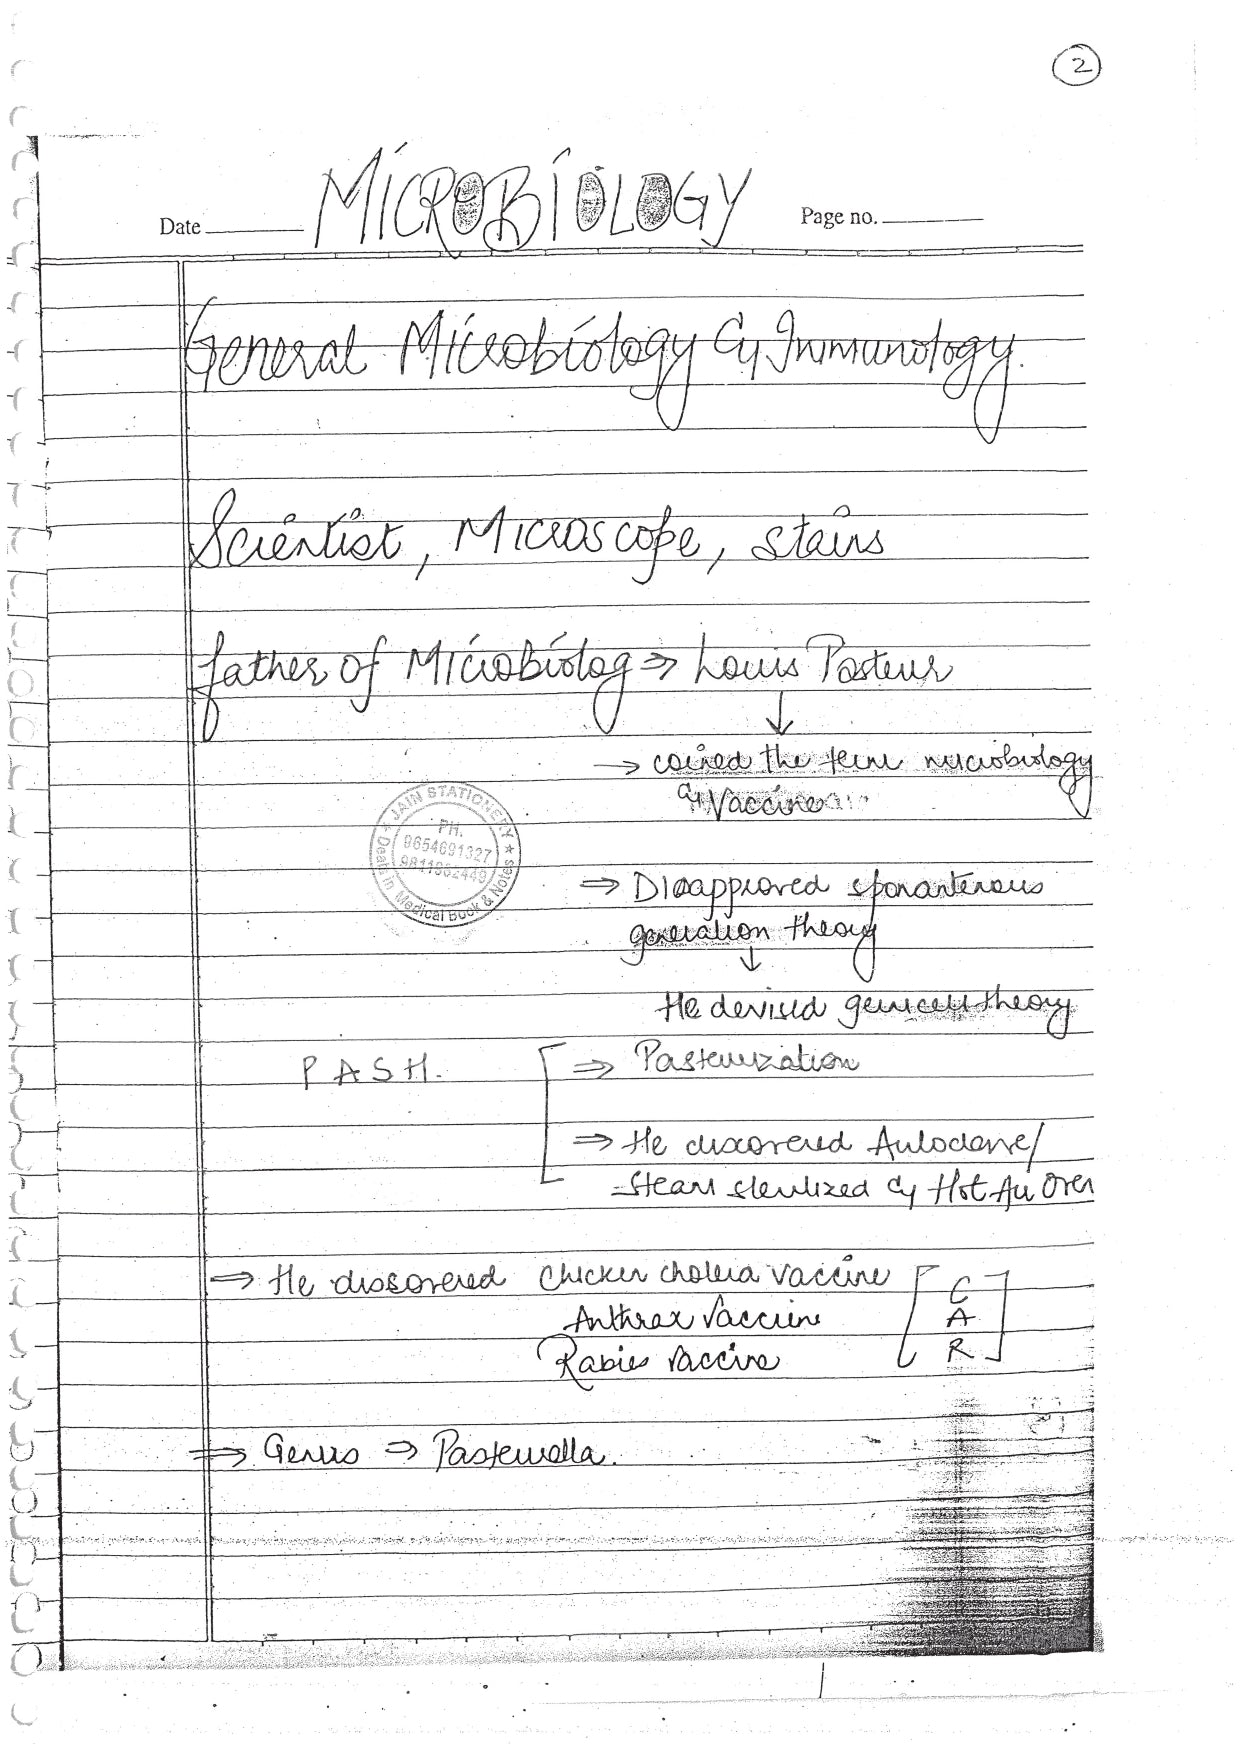 2
MICROBIOLOGY
Date Page no.
General Microbiology & Immunology.
Scientist, Microscope, stains
father of Microbiolog ⇒ Louis Pasteur
↓
→ coined the term microbiology
& Vaccine
JAIN STATIONERY
PH.
9654691327
9811962449
Deals in Medical Book & Notes
⇒ Disapproved sponanterous
generation theory
↓
He devised germ cell theory
P A S H. ⇒ Pasteurization
⇒ He discovered Autoclave/
steam sterilized & Hot Air Oven
⇒ He discovered chicken cholera vaccine C
Anthrax Vaccine A
Rabies Vaccine R
⇒ Genus ⇒ Pasteurella.